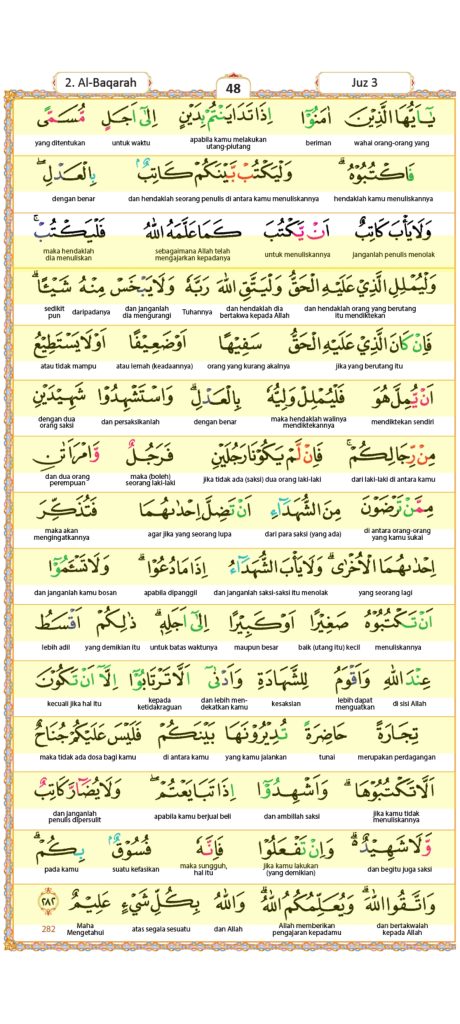 2. Al-Baqarah 48 Juz 3
يٰٓاَيُّهَا الَّذِيْنَ اٰمَنُوْٓا اِذَا تَدَايَنْتُمْ بِدَيْنٍ اِلٰٓى اَجَلٍ مُّسَمًّى
wahai orang-orang yang beriman apabila kamu melakukan utang-piutang untuk waktu yang ditentukan
فَاكْتُبُوْهُۗ وَلْيَكْتُبْ بَّيْنَكُمْ كَاتِبٌۢ بِالْعَدْلِۖ
hendaklah kamu menuliskannya dan hendaklah seorang penulis di antara kamu menuliskannya dengan benar
وَلَا يَأْبَ كَاتِبٌ اَنْ يَّكْتُبَ كَمَا عَلَّمَهُ اللّٰهُ فَلْيَكْتُبْۚ
janganlah penulis menolak untuk menuliskannya sebagaimana Allah telah mengajarkan kepadanya maka hendaklah dia menuliskan
وَلْيُمْلِلِ الَّذِيْ عَلَيْهِ الْحَقُّ وَلْيَتَّقِ اللّٰهَ رَبَّهٗ وَلَا يَبْخَسْ مِنْهُ شَيْـًٔاۗ
dan hendaklah orang yang berutang itu mendiktekan dan hendaklah dia bertakwa kepada Allah Tuhannya dan janganlah dia mengurangi daripadanya sedikit pun
فَاِنْ كَانَ الَّذِيْ عَلَيْهِ الْحَقُّ سَفِيْهًا اَوْ ضَعِيْفًا اَوْ لَا يَسْتَطِيْعُ
jika yang berutang itu orang yang kurang akalnya atau lemah (keadaannya) atau tidak mampu
اَنْ يُّمِلَّ هُوَ فَلْيُمْلِلْ وَلِيُّهٗ بِالْعَدْلِۗ وَاسْتَشْهِدُوْا شَهِيْدَيْنِ
mendiktekan sendiri maka hendaklah walinya mendiktekannya dengan benar dan persaksikanlah dengan dua orang saksi
مِنْ رِّجَالِكُمْۚ فَاِنْ لَّمْ يَكُوْنَا رَجُلَيْنِ فَرَجُلٌ وَّامْرَاَتٰنِ
dari laki-laki di antara kamu jika tidak ada (saksi) dua orang laki-laki maka (boleh) seorang laki-laki dan dua orang perempuan
مِمَّنْ تَرْضَوْنَ مِنَ الشُّهَدَاۤءِ اَنْ تَضِلَّ اِحْدٰىهُمَا فَتُذَكِّرَ
di antara orang-orang yang kamu sukai dari para saksi (yang ada) agar jika yang seorang lupa maka akan mengingatkannya
اِحْدٰىهُمَا الْاُخْرٰىۗ وَلَا يَأْبَ الشُّهَدَاۤءُ اِذَا مَا دُعُوْاۗ وَلَا تَسْـَٔمُوْٓا
yang seorang lagi dan janganlah saksi-saksi itu menolak apabila dipanggil dan janganlah kamu bosan
اَنْ تَكْتُبُوْهُ صَغِيْرًا اَوْ كَبِيْرًا اِلٰٓى اَجَلِهٖۗ ذٰلِكُمْ اَقْسَطُ
menuliskannya baik (utang itu) kecil maupun besar untuk batas waktunya yang demikian itu lebih adil
عِنْدَ اللّٰهِ وَاَقْوَمُ لِلشَّهَادَةِ وَاَدْنٰىٓ اَلَّا تَرْتَابُوْٓا اِلَّآ اَنْ تَكُوْنَ
di sisi Allah lebih dapat menguatkan kesaksian dan lebih mendekatkan kamu kepada ketidakraguan kecuali jika hal itu
تِجَارَةً حَاضِرَةً تُدِيْرُوْنَهَا بَيْنَكُمْ فَلَيْسَ عَلَيْكُمْ جُنَاحٌ
merupakan perdagangan tunai yang kamu jalankan di antara kamu maka tidak ada dosa bagi kamu
اَلَّا تَكْتُبُوْهَاۗ وَاَشْهِدُوْٓا اِذَا تَبَايَعْتُمْۖ وَلَا يُضَاۤرَّ كَاتِبٌ
jika kamu tidak menuliskannya dan ambillah saksi apabila kamu berjual beli dan janganlah penulis dipersulit
وَّلَا شَهِيْدٌۗ وَاِنْ تَفْعَلُوْا فَاِنَّهٗ فُسُوْقٌۢ بِكُمْۗ
dan begitu juga saksi jika kamu lakukan (yang demikian) maka sungguh, hal itu suatu kefasikan pada kamu
وَاتَّقُوا اللّٰهَۗ وَيُعَلِّمُكُمُ اللّٰهُۗ وَاللّٰهُ بِكُلِّ شَيْءٍ عَلِيْمٌ ٢٨٢
dan bertakwalah kepada Allah Allah memberikan pengajaran kepadamu dan Allah atas segala sesuatu Maha Mengetahui 282